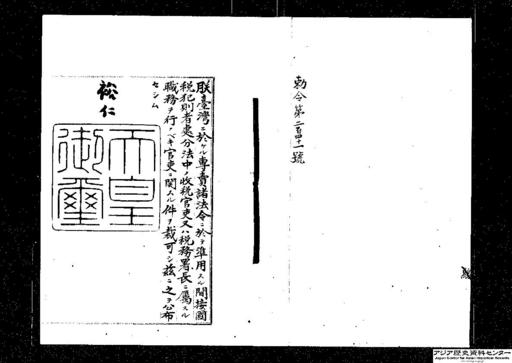 勅令第二百四十一號
朕臺灣ニ於ケル専賣諸法令ニ於テ準用スル間接國
税犯則者處分法中ノ收税官吏又ハ税務署長ニ屬スル
職務ヲ行フベキ官吏ニ關スル件ヲ裁可シ茲ニ之ヲ公布
セシム
裕仁
天皇
御璽
アジア歴史資料センター
Japan Center for Asian Historical Records